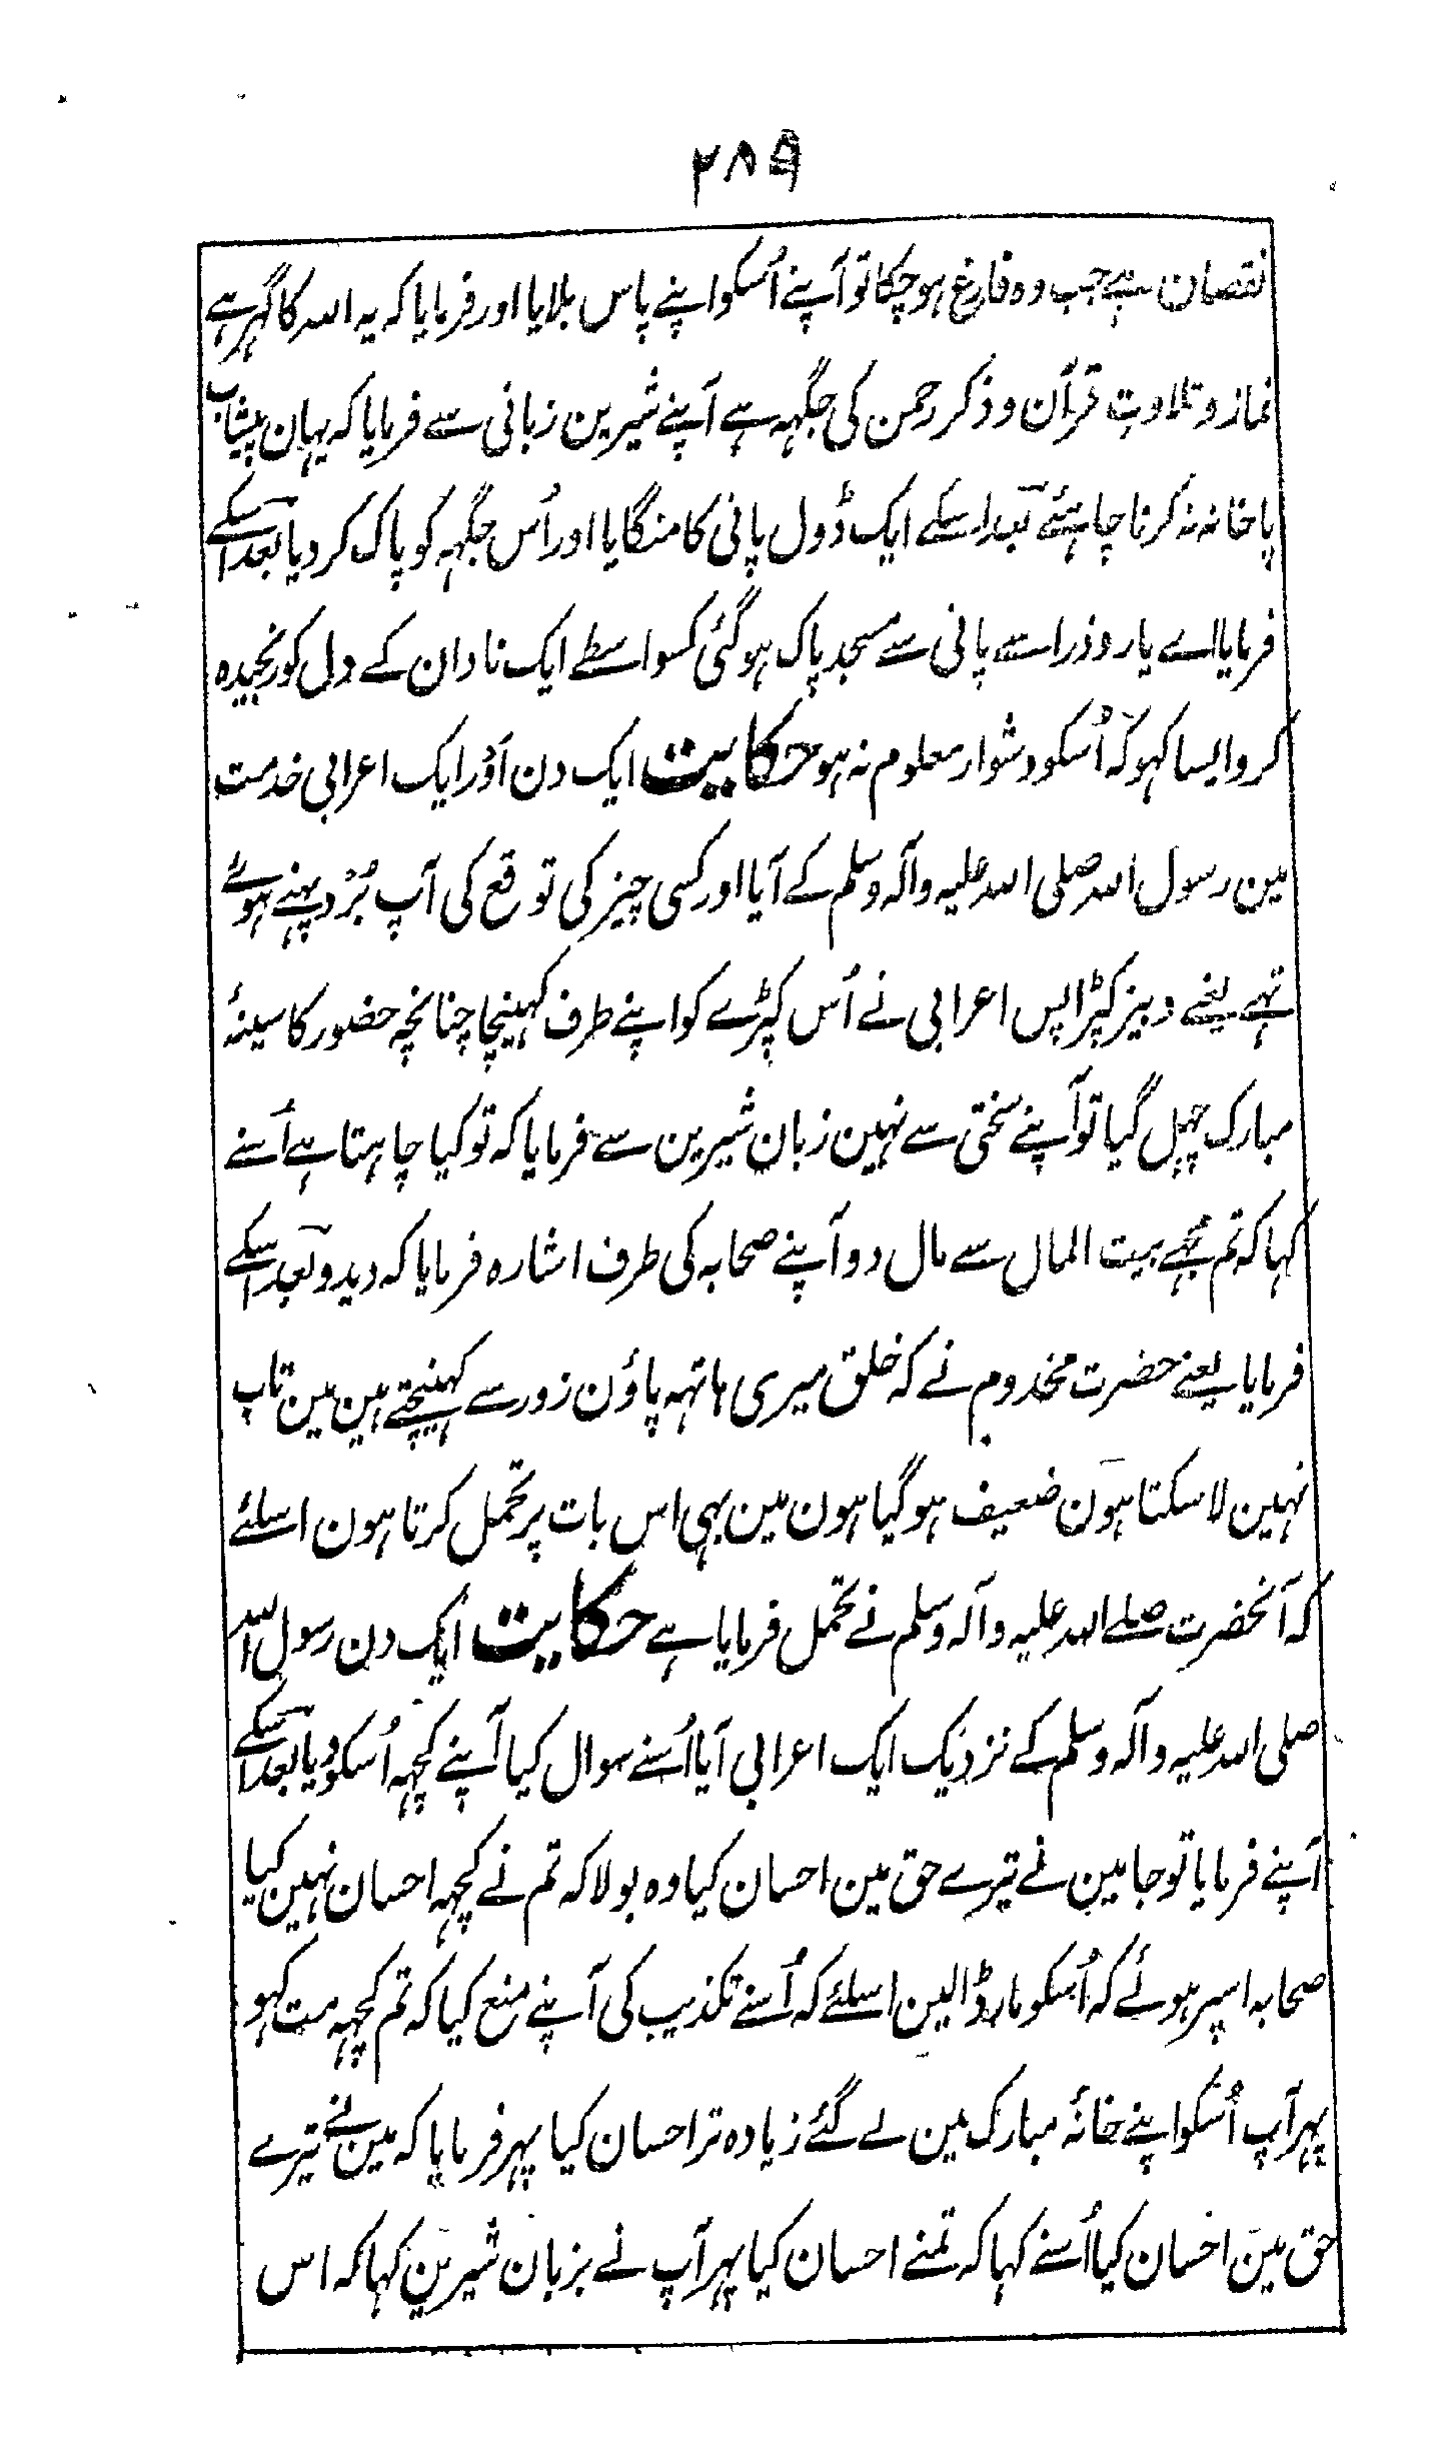 ۲۸۹
نقصان ہے جب وہ فارغ ہو چکا تو آپنے اُسکو اپنے پاس بلایا اور فرمایا کہ یہ اللہ کا گہر ہے
نماز و تلاوتِ قرآن و ذکر رحمن کی جگہہ ہے آپنے شیرین زبانی سے فرمایا کہ یہان پیشاب
پاخانہ نہ کرنا چاہئے بعد اسکے ایک ڈول پانی کا منگایا اور اُس جگہہ کو پاک کر دیا بعد اسکے
فرمایا اے یارو ذرا سے پانی سے مسجد پاک ہو گئی کسواسطے ایک نادان کے دل کو رنجیدہ
کرو ایسا کہو کہ اُسکو دشوار معلوم نہ ہو حکایت ایک دن اَوْر ایک اعرابی خدمت
مین رسول اللہ صلی اللہ علیہ وآلہ وسلم کے آیا اور کسی چیز کی توقع کی آپ بُرْد پہنے ہوئے
تہے یعنے دبیز کپڑا پس اعرابی نے اُس کپڑے کو اپنے طرف کہینچا چنانچہ حضور کا سینۂ
مبارک چہل گیا تو آپنے سختی سے نہین زبان شیرین سے فرمایا کہ تو کیا چاہتا ہے اُسنے
کہا کہ تم مجہے بیت المال سے مال دو آپنے صحابہ کی طرف اشارہ فرمایا کہ دیدو بعد اسکے
فرمایا یعنے حضرت مخدوم نے کہ خلق میری ہاتہہ پاؤن زور سے کہینچتے ہین مین تاب
نہین لا سکتا ہون ضعیف ہو گیا ہون مین بہی اس بات پر تحمل کرتا ہون اسلئے
کہ آنحضرت صلے اللہ علیہ وآلہ وسلم نے تحمل فرمایا ہے حکایت ایک دن رسول اللہ
صلی اللہ علیہ وآلہ وسلم کے نزدیک ایک اعرابی آیا اُسنے سوال کیا آپنے کچہہ اُسکو دیا بعد اسکے
آپنے فرمایا تو جا مین نے تیرے حق مین احسان کیا وہ بولا کہ تم نے کچہہ احسان نہین کیا
صحابہ اسپر ہوئے کہ اُسکو مار ڈالین اسلئے کہ اُسنے تکذیب کی آپنے منع کیا کہ تم کچہہ مت کہو
پہر آپ اُسکو اپنے خانۂ مبارک مین لے گئے زیادہ تر احسان کیا پہر فرمایا کہ مین نے تیرے
حق مین احسان کیا اُسنے کہا کہ تمنے احسان کیا پہر آپ نے بزبان شیرین کہا کہ اس